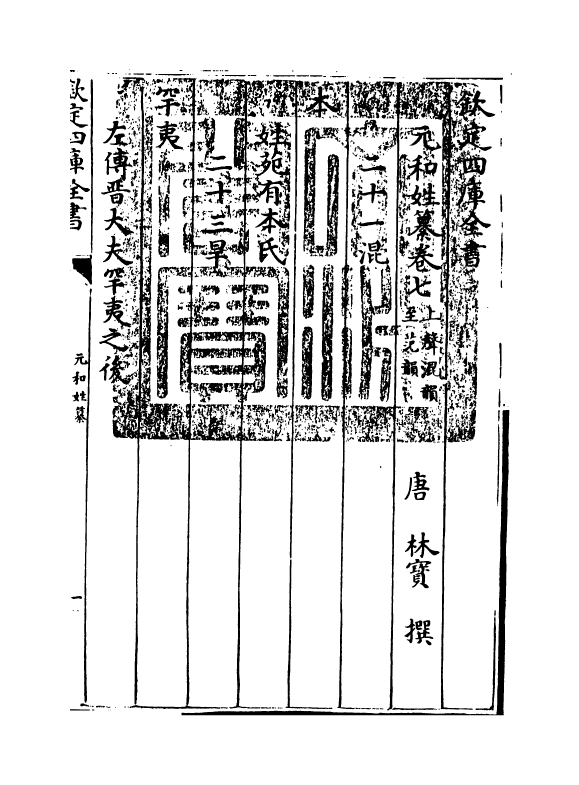 欽定四庫全書
元和姓纂卷七 上聲混韻至範韻
唐 林寶 撰
二十一混
本
姓苑有本氏
二十三旱
罕夷
左傳晉大夫罕夷之後
欽定四庫全書
元和姓纂
一